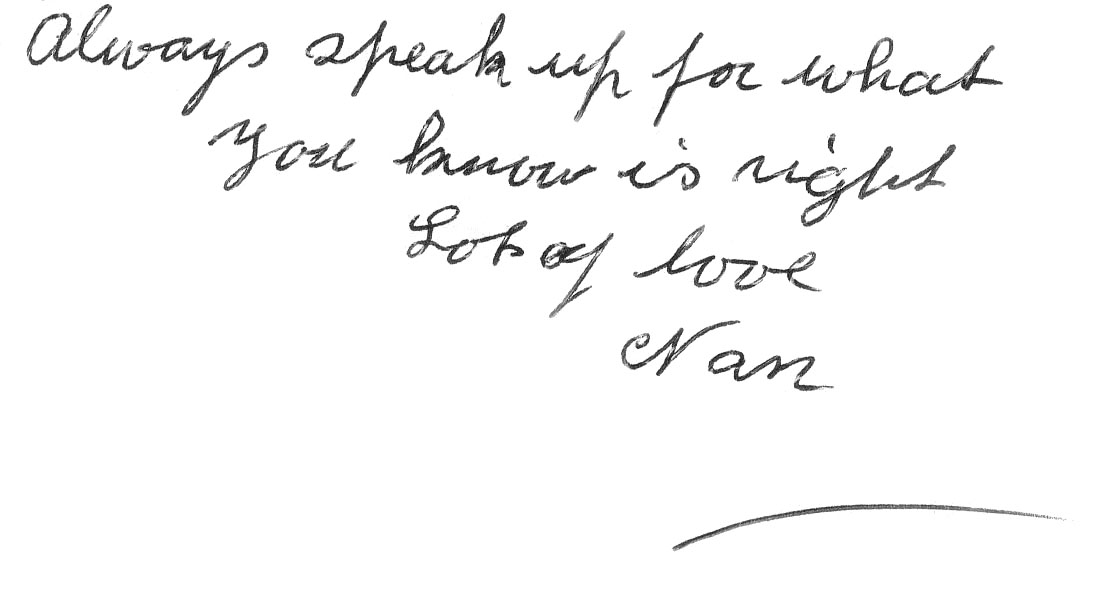 Always speak up for what
you know is right
Lots of love
Nan